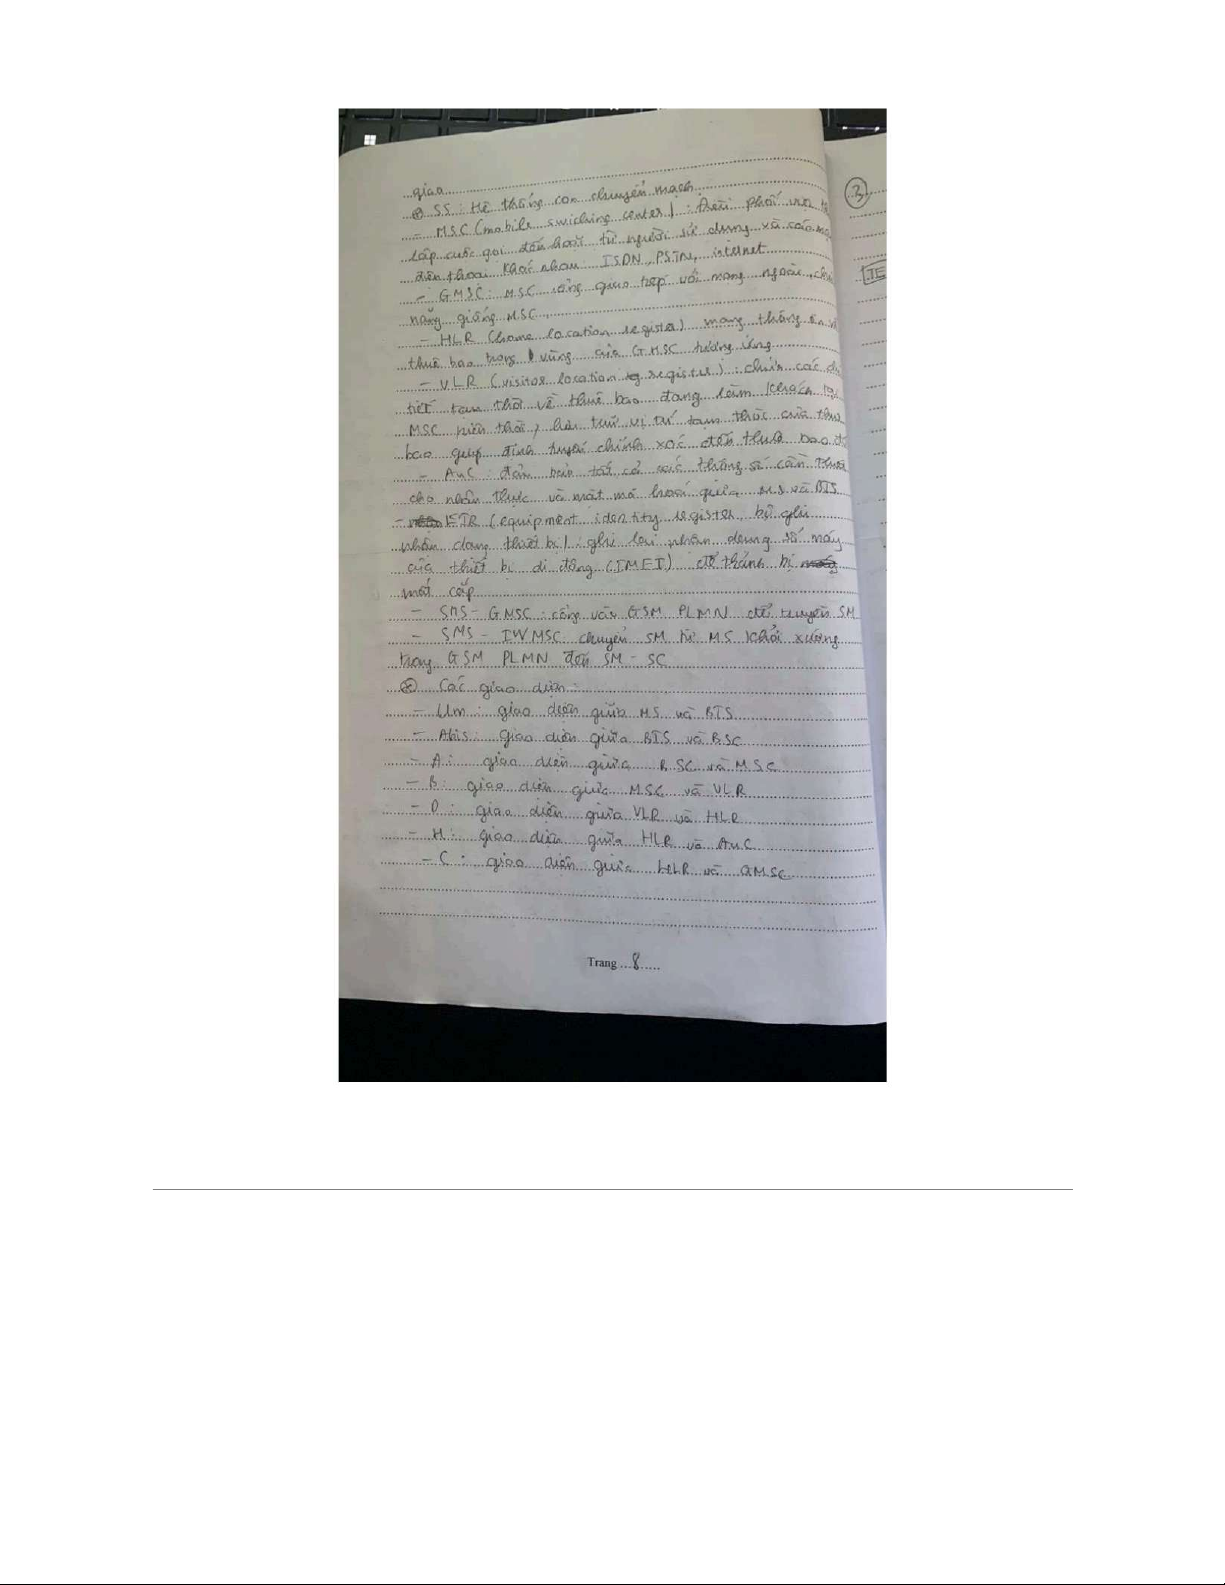 giao
⊛ SS: Hệ thống con chuyển mạch
- MSC (mobile swiching center): điều phối việc
lập cuộc gọi đến hoặc từ người sử dụng và các
điện thoại khác nhau: ISDN, PSTN, internet
- GMSC: MSC cổng giao tiếp với mạng ngoài,
năng giống MSC
- HLR (home location register) mang thông tin về
thuê bao trong 1 vùng của GMSC tương ứng
- VLR (visitor location register): chứa các chi
tiết tạm thời về thuê bao đang làm khách tại
MSC hiện thời, lưu trữ vị trí tạm thời của thuê
bao giúp định tuyến chính xác đến thuê bao đó
- AuC: đảm bảo tất cả các thông số cần thiết
cho nhận thực và mật mã hoá giữa MS và BTS
- EIR (equipment identity register bộ ghi
nhận dạng thiết bị): ghi lại nhận dạng số máy
của thiết bị di động (IMEI) để tránh bị
mất cắp
- SMS - GMSC: cổng vào GSM PLMN để truyền SM
- SMS - IWMSC: chuyển SM từ MS khởi xướng
trong GSM PLMN đến SM - SC
⊛ Các giao diện:
- Um: giao diện giữa MS và BTS
- Abis: giao diện giữa BTS và BSC
- A: giao diện giữa BSC và MSC
- B: giao diện giữa MSC và VLR
- D: giao diện giữa VLR và HLR
- H: giao diện giữa HLR và AuC
- C: giao diện giữa HLR và GMSC
Trang 8
3
TE